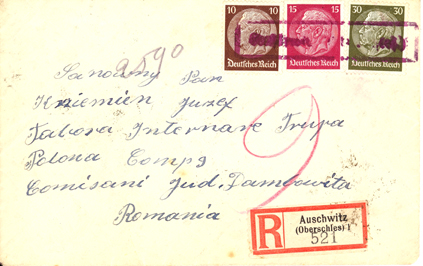 10 10
Deutsches Reich
15 15
Deutsches Reich
30 30
Deutsches Reich
2590
Pan
Krziemien Juzef
Tabora Internare Trupa
Polona Comps
Comisani Jud. Dambovita
Romania
R
Auschwitz
(Oberschles) 1
521